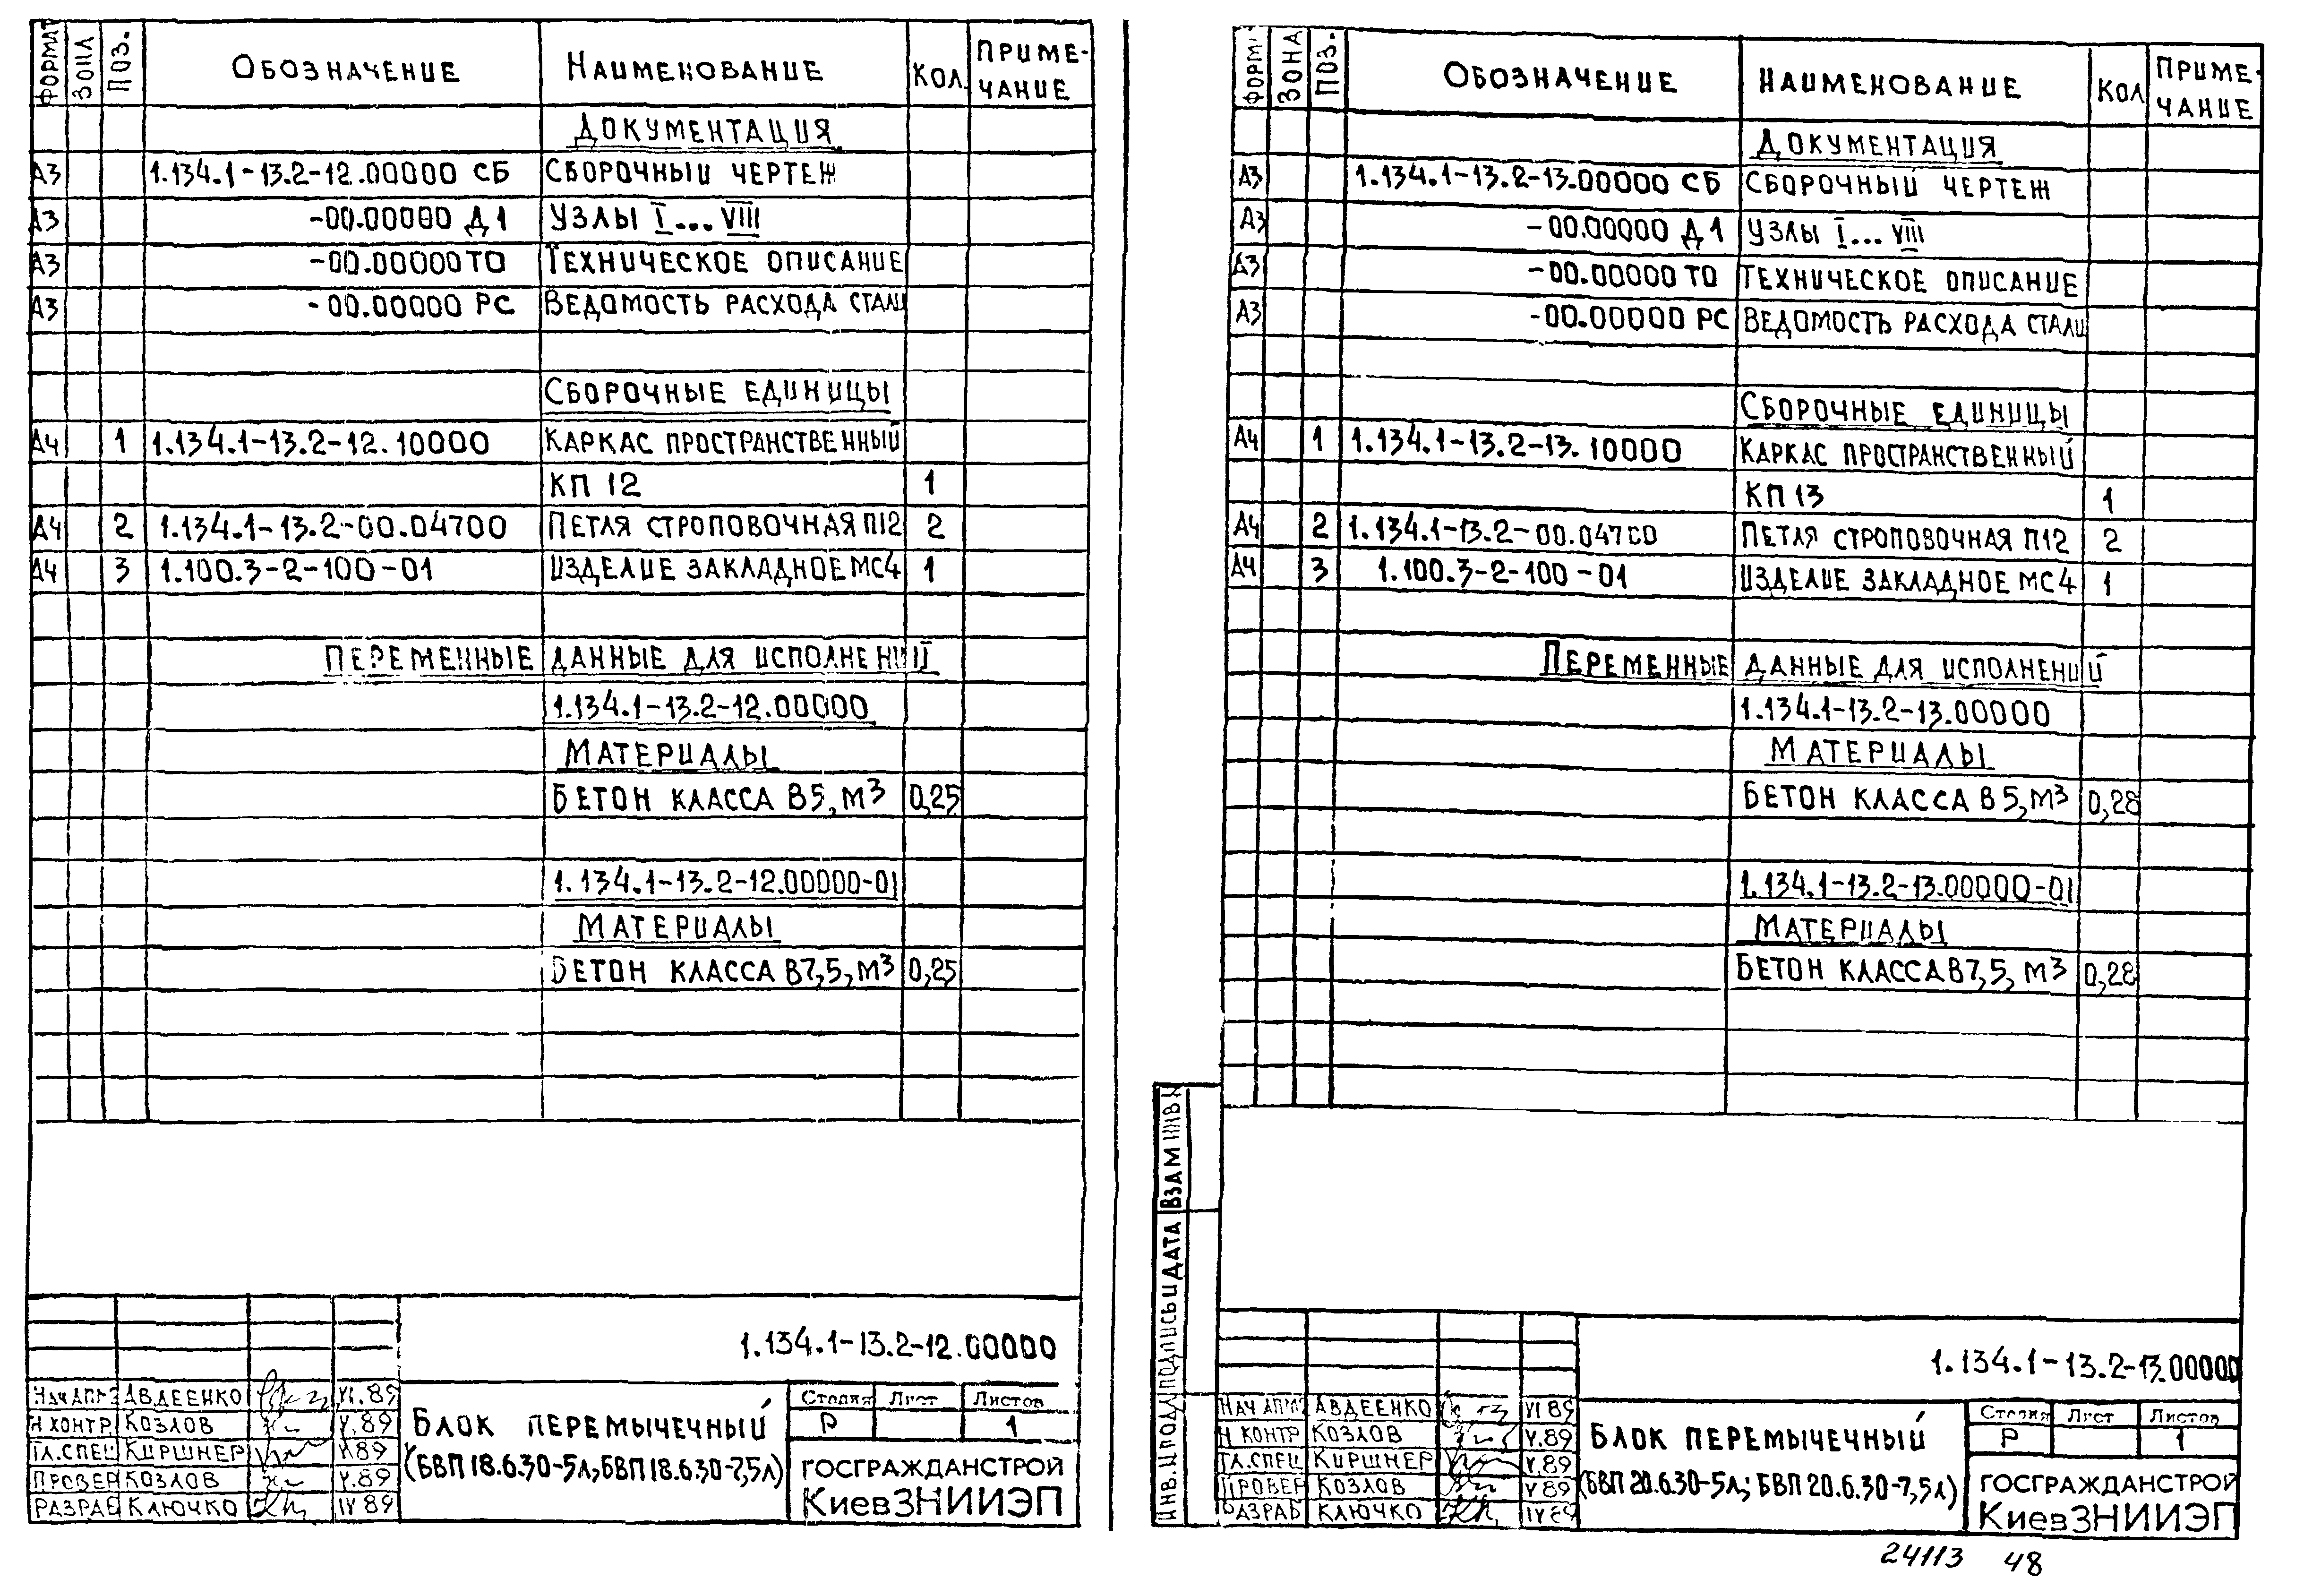 ФОРМАТ ЗОНА ПОЗ. ОБОЗНАЧЕНИЕ НАИМЕНОВАНИЕ КОЛ. ПРИМЕ-
ЧАНИЕ
ДОКУМЕНТАЦИЯ
А3 1.134.1-13.2-12.00000 СБ СБОРОЧНЫЙ ЧЕРТЕЖ
А3 -00.00000 Д1 УЗЛЫ I...VIII
А3 -00.00000 ТО ТЕХНИЧЕСКОЕ ОПИСАНИЕ
А3 -00.00000 РС ВЕДОМОСТЬ РАСХОДА СТАЛИ
СБОРОЧНЫЕ ЕДИНИЦЫ
А4 1 1.134.1-13.2-12.10000 КАРКАС ПРОСТРАНСТВЕННЫЙ
КП 12 1
А4 2 1.134.1-13.2-00.04700 ПЕТЛЯ СТРОПОВОЧНАЯ П12 2
А4 3 1.100.3-2-100-01 ИЗДЕЛИЕ ЗАКЛАДНОЕ МС4 1
ПЕРЕМЕННЫЕ ДАННЫЕ ДЛЯ ИСПОЛНЕНИЙ
1.134.1-13.2-12.00000
МАТЕРИАЛЫ
БЕТОН КЛАССА В5, М³ 0,25
1.134.1-13.2-12.00000-01
МАТЕРИАЛЫ
БЕТОН КЛАССА В7,5, М³ 0,25
1.134.1-13.2-12.00000
НАЧ АПМ3 АВДЕЕНКО VI.89
Н КОНТР КОЗЛОВ V.89
ГЛ.СПЕЦ КИРШНЕР V.89
ПРОВЕР КОЗЛОВ V.89
РАЗРАБ КЛЮЧКО IV 89
БЛОК ПЕРЕМЫЧЕЧНЫЙ
(БВП 18.6.30-5Л; БВП 18.6.30-7,5Л)
Стадия Лист Листов
Р 1
ГОСГРАЖДАНСТРОЙ
КиевЗНИИЭП
ФОРМ. ЗОНА ПОЗ. ОБОЗНАЧЕНИЕ НАИМЕНОВАНИЕ КОЛ ПРИМЕ-
ЧАНИЕ
ДОКУМЕНТАЦИЯ
А3 1.134.1-13.2-13.00000 СБ СБОРОЧНЫЙ ЧЕРТЕЖ
А3 -00.00000 Д1 УЗЛЫ I...VIII
А3 -00.00000 ТО ТЕХНИЧЕСКОЕ ОПИСАНИЕ
А3 -00.00000 РС ВЕДОМОСТЬ РАСХОДА СТАЛИ
СБОРОЧНЫЕ ЕДИНИЦЫ
А4 1 1.134.1-13.2-13.10000 КАРКАС ПРОСТРАНСТВЕННЫЙ
КП 13 1
А4 2 1.134.1-13.2-00.04700 ПЕТЛЯ СТРОПОВОЧНАЯ П12 2
А4 3 1.100.3-2-100-01 ИЗДЕЛИЕ ЗАКЛАДНОЕ МС4 1
ПЕРЕМЕННЫЕ ДАННЫЕ ДЛЯ ИСПОЛНЕНИЙ
1.134.1-13.2-13.00000
МАТЕРИАЛЫ
БЕТОН КЛАССА В5, М³ 0,28
1.134.1-13.2-13.00000-01
МАТЕРИАЛЫ
БЕТОН КЛАССА В7,5, М³ 0,28
ИНВ.N ПОДЛ ПОДПИСЬ И ДАТА ВЗАМ ИНВ N
1.134.1-13.2-13.00000
НАЧ АПМ3 АВДЕЕНКО VI 89
Н КОНТР КОЗЛОВ V.89
ГЛ.СПЕЦ КИРШНЕР V.89
ПРОВЕР КОЗЛОВ V 89
РАЗРАБ КЛЮЧКО IV 89
БЛОК ПЕРЕМЫЧЕЧНЫЙ
(БВП 20.6.30-5Л; БВП 20.6.30-7,5Л)
Стадия Лист Листов
Р 1
ГОСГРАЖДАНСТРОЙ
КиевЗНИИЭП
24113 48